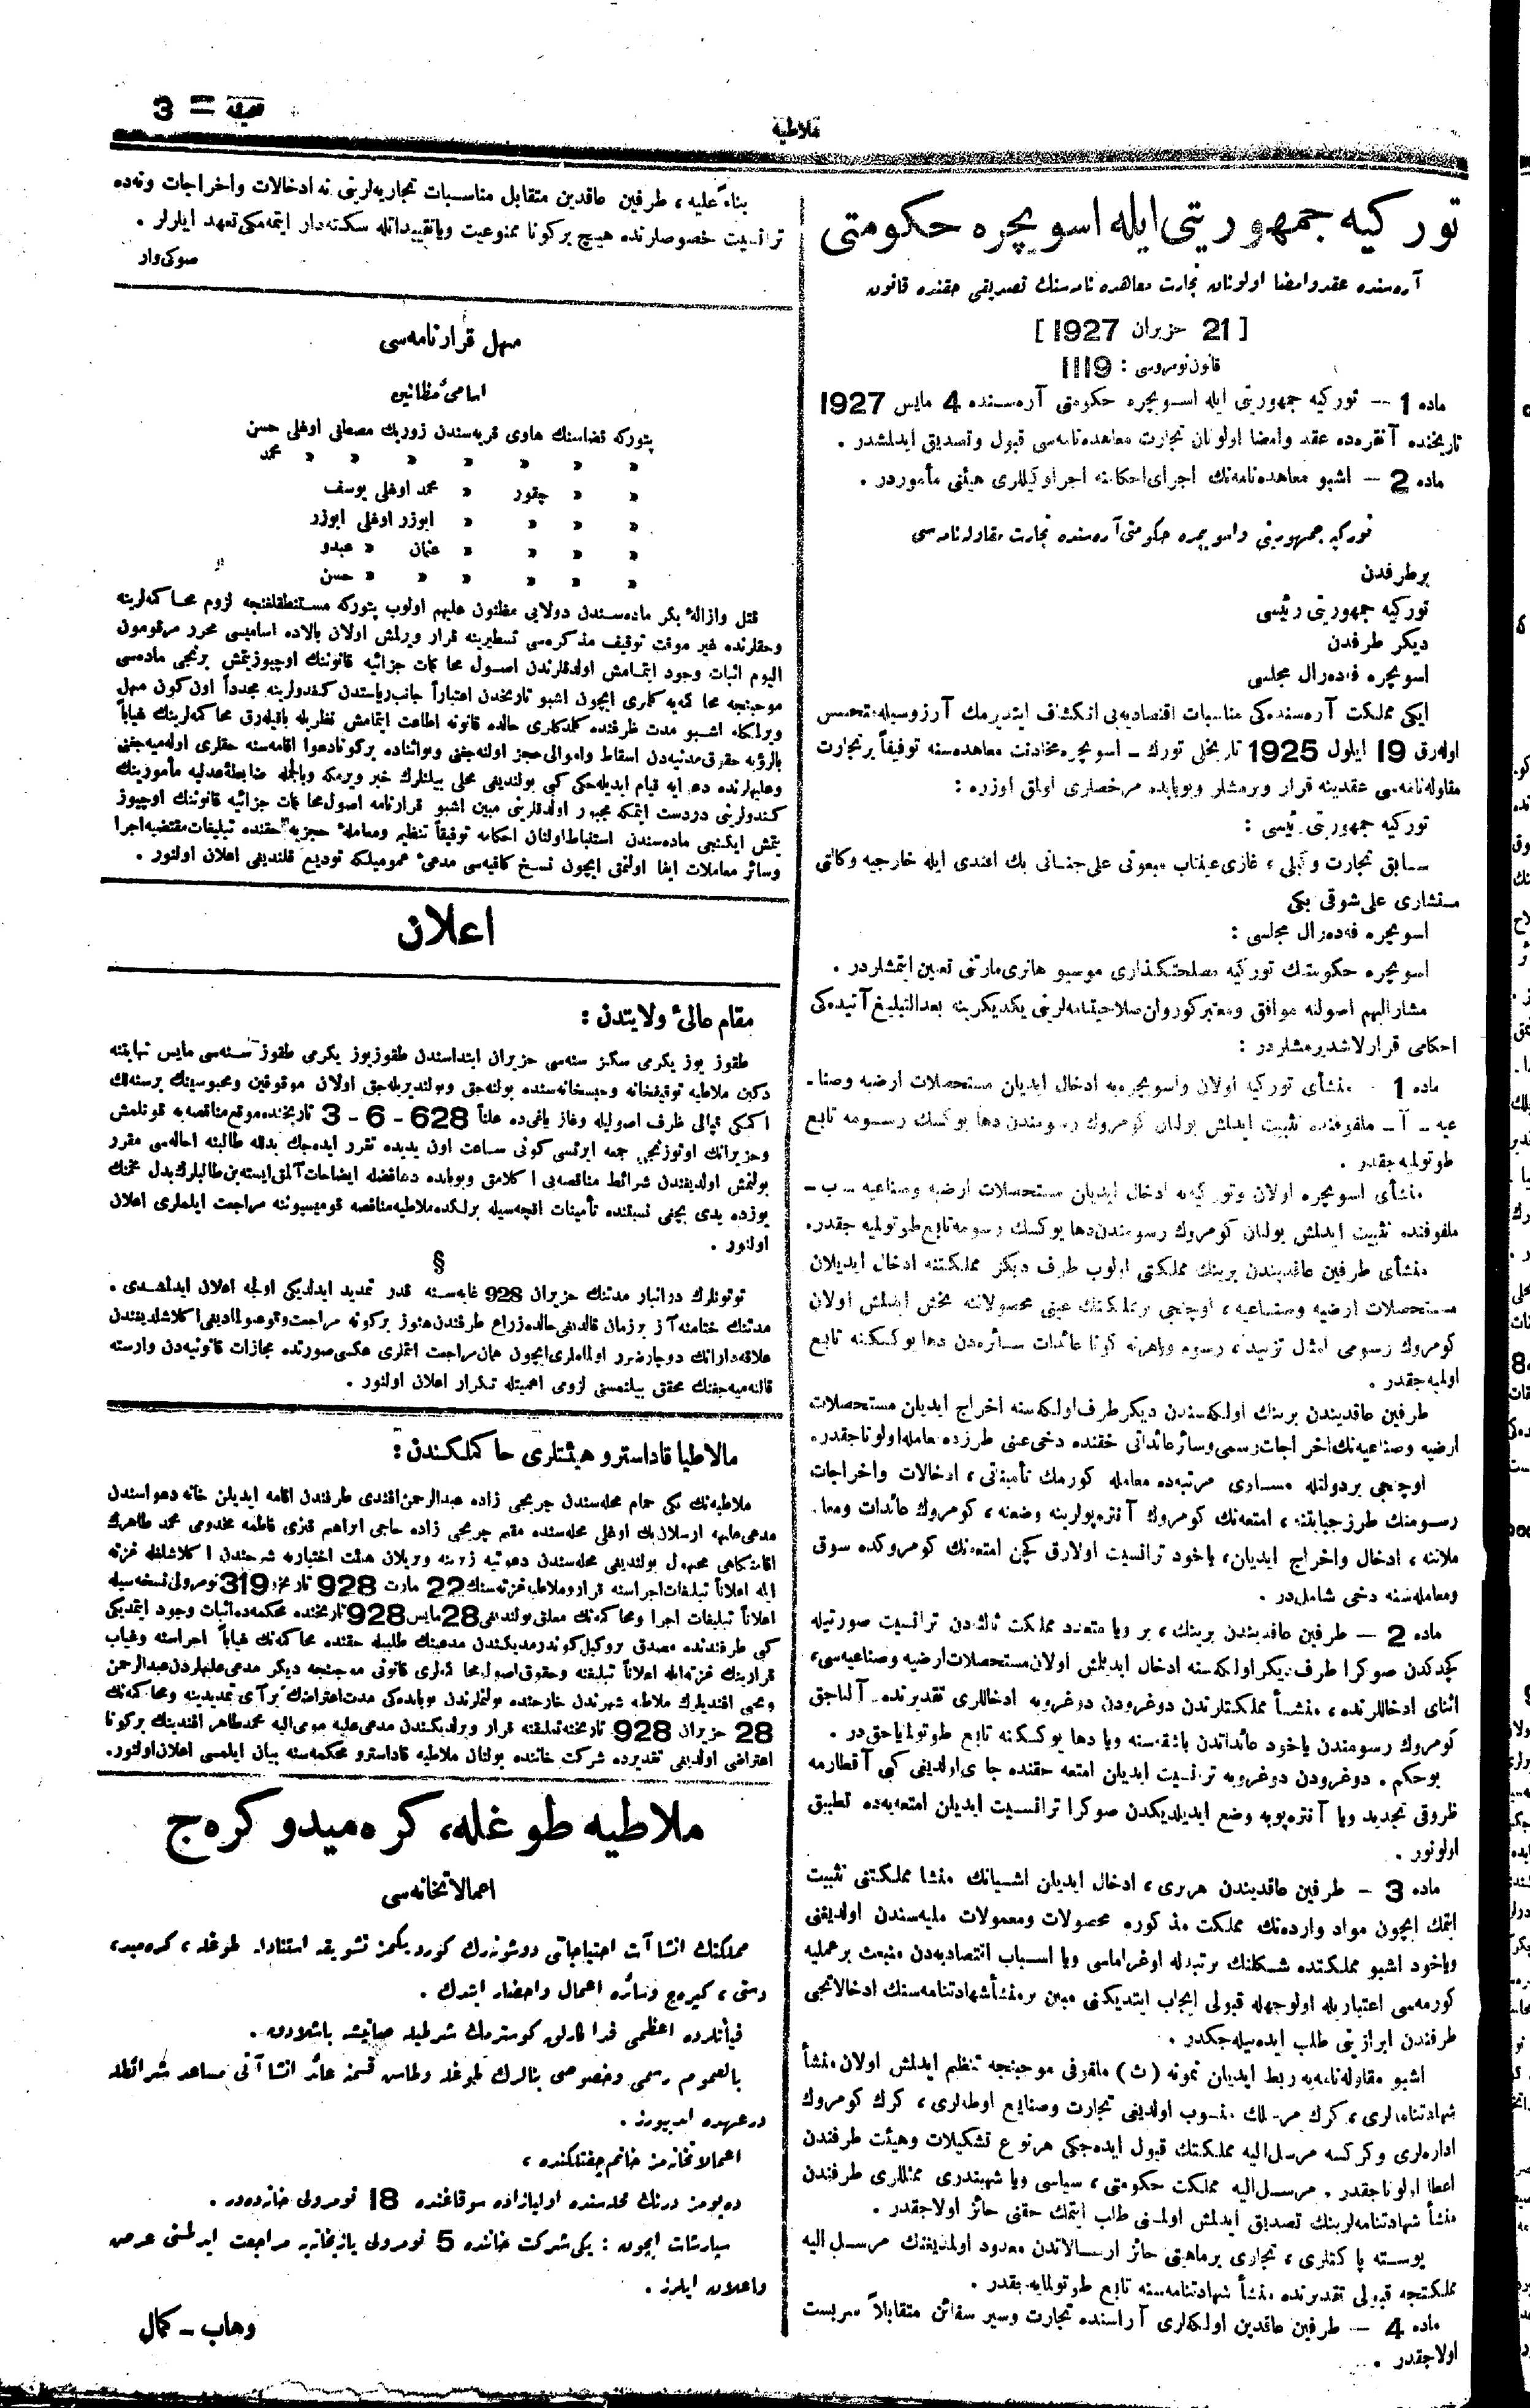 صحیفه = 3
ملاطیه
تورکیه جمهوریتی ایله اسویچره حکومتی
آره‌سنده عقد و امضا اولونان تجارت معاهده نامه‌سنك تصدیقی حقنده قانون
[ 21 حزیران 1927 ]
قانون نومروسی : 1119
ماده 1 — تورکیه جمهوریتی ایله اسویچره حکومتی آره‌سنده 4 مایس 1927
تاریخنده آنقره‌ده عقد وامضا اولونان تجارت معاهده‌نامه‌سی قبول وتصدیق ایدلمشدر .
ماده 2 — اشبو معاهده‌نامه‌نك اجرای احکامنه اجرا وکیللری هیئتی مأموردر .
تورکیه جمهوریتی واسویچره حکومتی آره‌سنده تجارت مقاوله‌نامه‌سی
برطرفدن
تورکیه جمهوریتی رئیسی
دیکر طرفدن
اسویچره فه‌ده‌رال مجلسی
ایکی مملکت آره‌سنده‌کی مناسبات اقتصادیه‌یی انکشاف ایتدیرمك آرزوسیله متحسس
اوله‌رق 19 ایلول 1925 تاریخلی تورك ـ اسویچره مخادنت معاهده‌سنه توفیقاً برتجارت
مقاوله‌نامه‌سی عقدینه قرار ویرمشلر وبوبابده مرخصلری اولمق اوزره :
تورکیه جمهوریتی رئیسی :
سابق تجارت وکیلی ، غازی عینتاب مبعوثی علی جنانی بك افندی ایله خارجیه وکالتی
مستشاری علی شوقی بکی
اسویچره فه‌ده‌رال مجلسی :
اسویچره حکومتنك تورکیه مصلحتکذاری موسیو هانری مارتنی تعیین ایتمشلردر .
مشارالیهم اصولنه موافق ومعتبر کورولن صلاحیتنامه‌لرینی یکدیکرینه بعدالتبلیغ آتیده‌کی
احکامی قرارلاشدیرمشلردر :
ماده 1 - منشأی تورکیه اولان واسویچره‌یه ادخال ایدیلن مستحصلات ارضیه وصنا-
عیه ـ آ ـ ملفوفنده تثبیت ایدلمش بولنان کومروك رسومندن دها یوکسك رسومه تابع
طوتولمیه‌جقدر .
منشأی اسویچره اولان وتورکیه‌یه ادخال ایدیلن مستحصلات ارضیه وصناعیه ـ ب ـ
ملفوفنده تثبیت ایدلمش بولنان کومروك رسومندن دها یوکسك رسومه تابع طوتولمیه جقدر.
منشأی طرفین عاقدیندن برینك مملکتی اولوب طرف دیکر مملکتنه ادخال ایدیلان
مستحصلات ارضیه وصناعیه ، اوچنجی بر مملکتك عینی محصولاتنه بخش ایدلمش اولان
کومروك رسومی امثال تزیید ، رسوم وباهرنه کونا عائدات سائره‌دن دها یوکسکنه تابع
اولمیه‌جقدر .
طرفین عاقدیندن برینك اولکه‌سندن دیکر طرف اولکه‌سنه اخراج ایدیلن مستحصلات
ارضیه وصناعیه‌نك اخراجات رسمی وسائر عائداتی حقنده دخی عینی طرزده معامله اولوناجقدر.
اوچنجی بردولتله مساوی مرتبه‌ده معامله کورمك تأمیناتی ، ادخالات واخراجات
رسومنك طرز جبایتنه ، امتعه‌نك کومروك آنتره‌پولرینه وضعنه ، کومروك عائدات ومعا-
ملاتنه ، ادخال واخراج ایدیلن ، یاخود ترانسیت اولارق کچن امتعه‌نك کومروکده سوق
ومعامله‌سنه دخی شاملدر .
ماده 2 — طرفین عاقدیندن برینك ، بر ویا متعدد مملکت ثالثه‌دن ترانسیت صورتیله
کچدکدن صوکرا طرف دیکر اولکه‌سنه ادخال ایدیلمش اولان مستحصلات ارضیه وصناعیه‌سی ،
اثنای ادخاللرنده ، منشأ مملکتلرندن دوغرودن دوغرویه ادخاللری تقدیرنده آلناجق
کومروك رسومندن یاخود عائداتدن باشقه‌سنه ویا دها یوکسکنه تابع طوتولمایاجقدر .
بوحکم . دوغرودن دوغرویه ترانسیت ایدیلن امتعه حقنده جاری اولدیغی کبی آقطارمه
ظروفی تجدید ویا آنتره‌پویه وضع ایدیلدیکدن صوکرا ترانسیت ایدیلن امتعه‌یه‌ده تطبیق
اولونور .
ماده 3 - طرفین عاقدیندن هربری ، ادخال ایدیلن اشیانك منشأ مملکتنی تثبیت
ایتمك ایچون مواد وارده‌نك مملکت مذکوره محصولات ومعمولات ملیه‌سندن اولدیغنی
ویاخود اشبو مملکتده شکلنك برتبدله اوغراماسی ویا اسباب اقتصادیه‌دن منبعث برعملیه
کورمه‌سی اعتباریله اولوجهله قبولی ایجاب ایتدیکنی مبین برمنشأ شهادتنامه‌سنك ادخالاتجی
طرفندن ابرازینی طلب ایده‌بیله‌جکدر .
اشبو مقاوله‌نامه‌یه ربط ایدیلن نمونه ( ث ) ملفوفی موجبنجه تنظیم ایدلمش اولان منشأ
شهادتنامه‌لری ، کرك مرسلك منسوب اولدیغی تجارت وصنایع اوطه‌لری ، کرك کومروك
اداره‌لری وکرکسه مرسل‌الیه مملکتك قبول ایده‌جکی هرنوع تشکیلات وهیئت طرفندن
اعطا اولوناجقدر . مرسل‌الیه مملکت حکومتی ، سیاسی ویا شهبندری ممثللری طرفندن
منشأ شهادتنامه‌لرینك تصدیق ایدلمش اولمسنی طلب ایتمك حقنی حائز اولاجقدر .
پوسته پاکتلری ، تجاری برماهیتی حائز ارسالاتدن معدود اولمدیغنك مرسل الیه
مملکتجه قبولی تقدیرنده منشأ شهادتنامه‌سنه تابع طوتولمایه‌جقدر .
ماده 4 — طرفین عاقدین اولکه‌لری آراسنده تجارت وسیر سفائن متقابلاً سربست
اولاجقدر .
بناءً علیه ، طرفین عاقدین متقابل مناسبات تجاریه‌لرینی نه ادخالات واخراجات ونه‌ده
ترانسیت خصوصلرنده هیچ برکونا ممنوعیت ویاتقییداتله سکته‌دار ایتمه‌مکی تعهد ایلرلر .
صوکی وار
مهل قرارنامه‌سی
اسامیٔ مظانین
پتورکه قضاسنك هاوی قریه‌سندن زوربك مصطفی اوغلی حسن
» » » » » » » محمد
» » چقور » محمد اوغلی یوسف
» » » » ابوزر اوغلی ابوزر
» » » » عثمان » عبدو
» » » » » » حسن
قتل وازالهٔ بکر ماده‌سندن دولایی مظنون علیهم اولوب پتورکه مستنطقلغنجه لزوم محاکمه‌لرینه
وحقلرنده غیر موقت توقیف مذکره‌سی تسطیرینه قرار ویرلمش اولان بالاده اسامیسی محرر مرقومون
الیوم اثبات وجود ایتمامش اولدقلرندن اصول محاکمات جزائیه قانوننك اوچیوزیتمش برنجی ماده‌سی
موجبنجه محاکمه‌یه کلمری ایچون اشبو تاریخدن اعتباراً جانب ریاستدن کندولرینه مجدداً اون کون مهل
ویرلمکله اشبو مدت ظرفنده کلمدکلری حالده قانونه اطاعت ایتمامش نظریله باقیله‌رق محاکمه‌لرینك غیاباً
بالرؤیه حقوق مدنیه‌دن اسقاط واموالی حجز اولنه‌جغی وبواثناده برکونادعوا اقامه‌سنه حقلری اوله‌میه‌جغی
وعلیهلرنده دعوایه قیام ایدیله‌جکی کبی بولندیغی محلی بیلنلرك خبر ویرمکه وبالجمله ضابطهٔ عدلیه مأمورینك
کندولرینی دردست ایتمکه مجبور اولدقلرینی مبین اشبو قرارنامه اصول محاکمات جزائیه قانوننك اوچیوز
یتمش ایکنجی ماده‌سندن استنباط اولنان احکامه توفیقاً تنظیم ومعاملهٔ حجزیه حقنده تبلیغات مقتضیه اجرا
وسائر معاملات ایفا اولنمق ایچون نسخ کافیه‌سی مدعیٔ عمومیلکه تودیع قلندیغی اعلان اولنور .
اعلان
مقام عالیٔ ولایتدن :
طقوز یوز یکرمی سکز سنه‌سی حزیران ابتداسندن طقوزیوز یکرمی طقوز سنه‌سی مایس نهایتنه
دکین ملاطیه توقیفخانه وحبسخانه‌سنده بولنه‌جق وبولندیریله‌جق اولان موقوفین ومحبوسینك برسنه‌لك
اکمکی قپالی ظرف اصولیله وغاز یاغی‌ده علناً 628 - 6 - 3 تاریخنده موقع مناقصه‌یه قونلمش
وحزیرانك اوتوزنجی جمعه ایرتسی کونی ساعت اون یدیده تقرر ایده‌جك بدلله طالبنه احاله‌سی مقرر
بولنمش اولدیغندن شرائط مناقصه‌یی اکلامق وبوبابده دهافضله ایضاحات آلمق ایسته‌ین طالبلرك بدل مخمنك
یوزده یدی بچغی نسبتنده تأمینات اقچه‌سیله برلکده ملاطیه مناقصه قومیسیوننه مراجعت ایلملری اعلان
اولنور .
§
توتونلرك درانبار مدتنك حزیران 928 غایه‌سنه قدر تمدید ایدلدیکی اولجه اعلان ایدلمشدی .
مدتنك ختامنه آز برزمان قالدیغی حالده زراع طرفندن هنوز برکونه مراجعت وقوعبولمادیغی اکلاشلدیغندن
علاقه‌دارانك دوچار ضرر اولماملری ایچون همان مراجعت ایتملری عکسی صورتده مجازات قانونیه‌دن وارسته
قالنه‌میه‌جغنك محقق بیلنمسنی لزومی اهمیتله تکرار اعلان اولنور .
مالاطیا قاداسترو هیئتلری حاکملکندن :
ملاطیه‌نك یکی حمام محله‌سندن چربجی زاده عبدالرحمن افندی طرفندن اقامه ایدیلن خانه دعواسندن
مدعی علیهه ارسلان بك اوغلی محله‌سنده مقیم چربجی زاده حاجی ابراهیم قیزی فاطمه مخدومی محمد طاهرك
اقامتکاهی مجهول بولندیغی محله‌سندن دعوتیه زیرینه ویریلان هیئت اختیاریه شرحندن اکلاشلمغله غزته
ایله اعلاناً تبلیغات اجراسنه قرار وملاطیه غزته‌سنك 22 مارت 928 تاریخ و 319 نومرولی نسخه‌سیله
اعلاناً تبلیغات اجرا ومحاکمه‌نك معلق بولندیغی 28 مایس 928 تاریخنده محکمه‌ده اثبات وجود ایتمدیکی
کبی طرفندنده مصدق بروکیل کوندرمدیکندن مدعینك طلبیله حقنده محاکمه‌نك غیاباً اجراسنه وغیاب
قرارینك غزته ایله اعلاناً تبلیغنه وحقوق اصول محاکمه‌لری قانونی موجبنجه دیکر مدعی علیهلردن عبدالرحمن
ویحیی افندیلرك ملاطیه شهرندن خارجنده بولنملرندن بوبابده‌کی مدت اعتراضك برآی تمدیدینه ومحاکمه‌نك
28 حزیران 928 تاریخنه تعلیقنه قرار ویرلدیکندن مدعی علیه مومی الیه محمدطاهر افندینك برکونا
اعتراضی اولدیغی تقدیرده شرکت خاننده بولنان ملاطیه قاداسترو محکمه‌سنه بیان ایلمسی اعلان اولنور.
ملاطیه طوغله، کره‌میدو کره‌ج
اعمالاتخانه‌سی
مملکتك انشاآت احتیاجاتی دوشونه‌رك کوردیکمز تشویقه استناداً طوغله ، کره‌مید ،
دستی ، کیره‌ج وسائره اعمال واحضار ایتدك .
فیأتلرده اعظمی فداکارلق کوسترمك شرطیله صاتیشه باشلادق .
بالعموم رسمی وخصوصی بنالرك طوغله وطاس قسمنه عائد انشاآتی مساعد شرائطله
درعهده ایدیبورز .
اعمالاتخانه‌مز خانم چفتلکنده ،
ده‌پومز درنك محله‌سنده اولیازاده سوقاغنده 18 نومرولی خانه‌ده‌در .
سپارشات ایچون : یکی شرکت خاننده 5 نومرولی یازیخانه‌یه مراجعت ایدلمسنی عرض
واعلان ایلرز .
وهاب ـ کمال